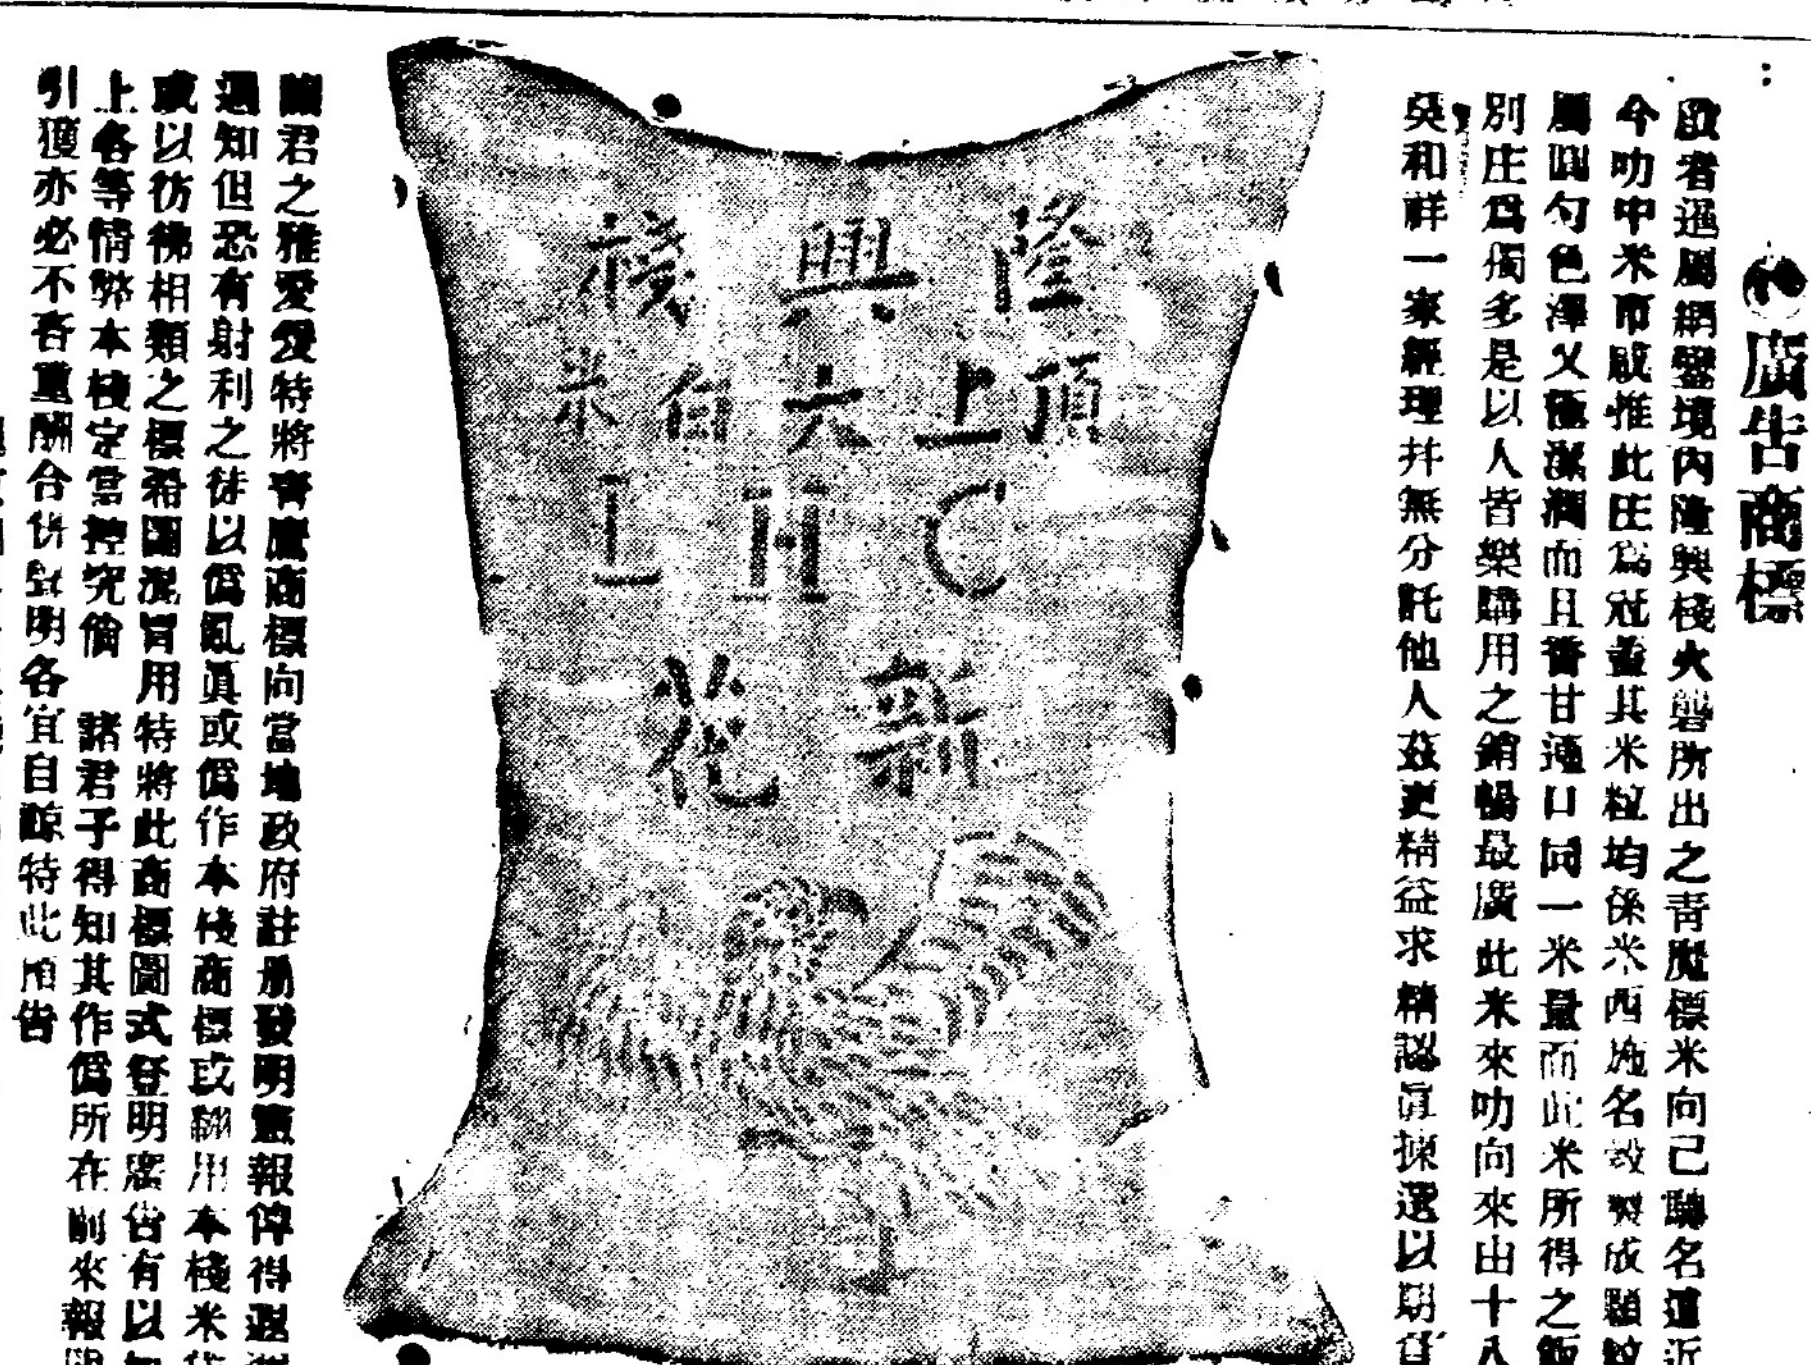 廣告商標
啟者暹屬網鑾境內隆興棧火礱所出之青鷹標米向已馳名遠近
今叻中米市咸推此庄為冠蓋其米粒均係米西施名穀製成顆粒
圓勻色澤又極潔潤而且香甘適口同一米量而此米所得之飯
別庄為獨多是以人皆樂購用之銷暢最廣此米來叻向來由十八
吳和祥一家經理并無分託他人茲更精益求精認眞揀選以期
隆興棧
頂上六白米
C H L
新花
君之雅愛爰特將青鷹商標向當地政府註册發明憲報俾得週
週知但恐有射利之徒以僞亂眞或僞作本棧商標或翻用本棧米
或以彷彿相類之標希圖混冒用特將此商標圖式登明廣告有以
上各等情弊本棧定當控究倘 諸君子得知其作僞所在前來報
引獲亦必不吝重酬合併聲明各宜自諒特此預告